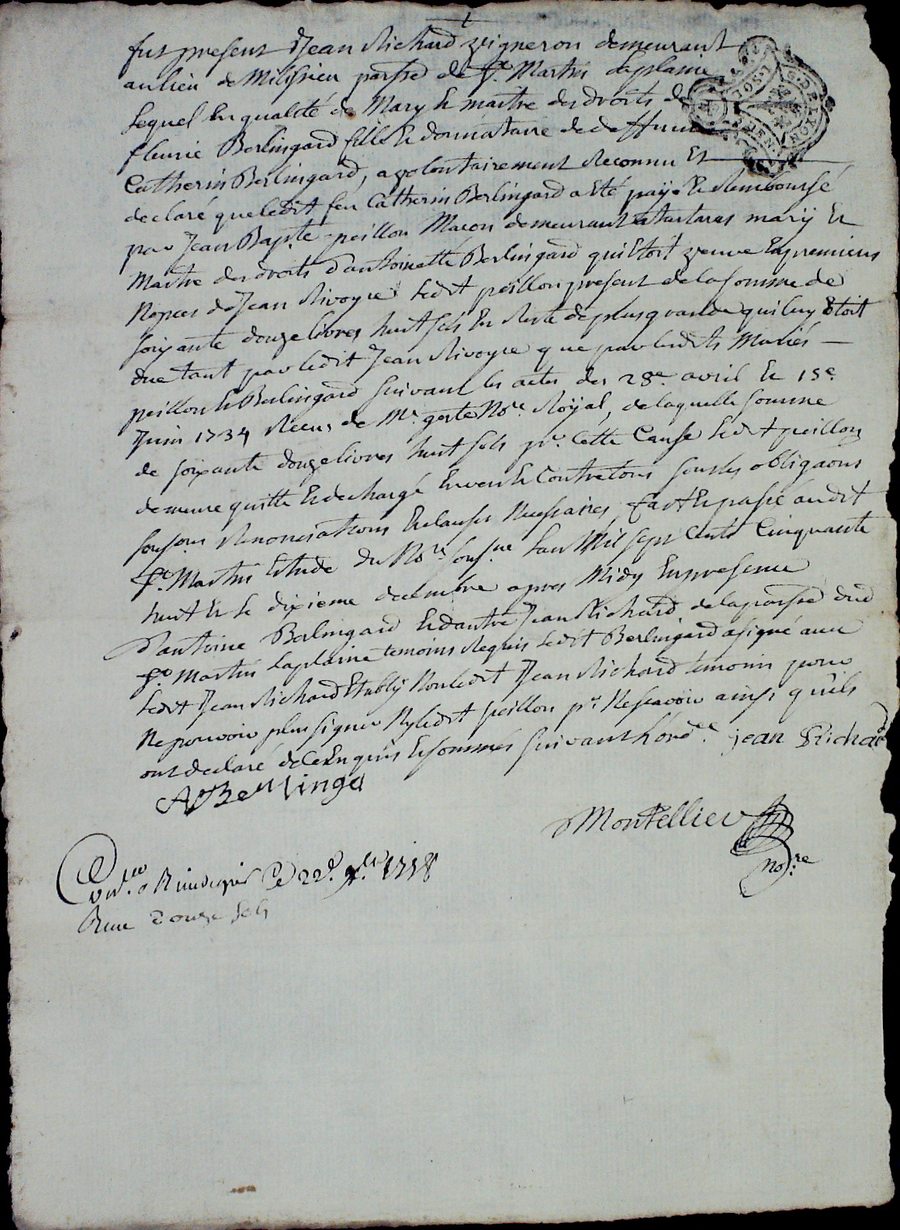 fut present Jean Richard vigneron demeurant
au lieu de Milisieu parsse de St. Martin laplaine
lequel En qualité de Mary & maitre des droits de
fleurie Berlingard fille & donnataire de deffunct
Catherin Berlingard, a volontairement Reconnu Et
declaré que ledit feu Catherin Berlingard a Eté payé & Remboursé
par Jean Bapte. peillon Macon demeurant a tartaras mary Et
Maitre des droits d'antoinette Berlingard qui Etoit veuve En premieres
Nopces de Jean Rivoyre ledit peillon present de la somme de
soixante douze livres huit sols En Reste de plus grande qui luy Etoit
due tant par ledit Jean Rivoyre que par lesdits Mariés
peillon & Berlingard suivant les actes des 28e. avril & 15e.
Juin 1734 Receus de Me. Nore. Royal, de laquelle somme
de soixante douze livres huit sols pr. cette Cause ledit peillon
demeure quitte & dechargé Envers & Contre tous sous les obligaons
soumons Renonciations & clauses Necessaires, fait & passé audit
St. Martin Etude du Nore. sousne. l'an Mil sept Cents Cinquante
huit & le dixieme decembre apres Midy En presence
d'antoine Berlingard & d'autre Jean Richard de la parsse dud
St. Martin laplaine temoins Requis ledit Berlingard a signé avec
ledit Jean Richard Etably Non ledit Jean Richard temoin pour
Ne pouvoir plus signer Ny ledit peillon pr. Ne scavoir ainsi qu'ils
ont declaré de ce Enquis & sommés suivant l'ordce. jean Richard
A Berlinga
Montellier
nore
Conlé a Rivedegier le 22e. xbre 1758
Reçu Douze sols